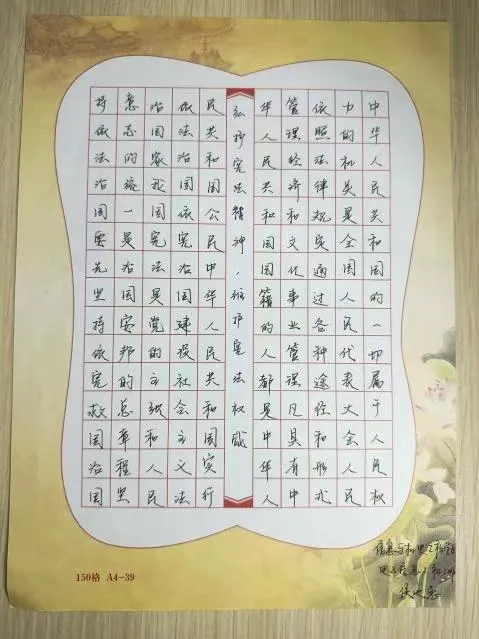 中华人民共和国的一切属于人民权
力的机关是全国人民代表大会人民
依照法律规定通过各种途径和形式
管理经济和文化事业管理凡具有中
华人民共和国国籍的人都是中华人
弘护宪法精神，维护宪法权威
民共和国公民中华人民共和国实行
依法治国依宪治国建设社会主义法
治国家我国宪法是党的主张和人民
意志的统一是治国安邦的总章程坚
持依法治国要先坚持依宪救国治国
150格 A4-39
信息与机电工程学院
电子信息工程